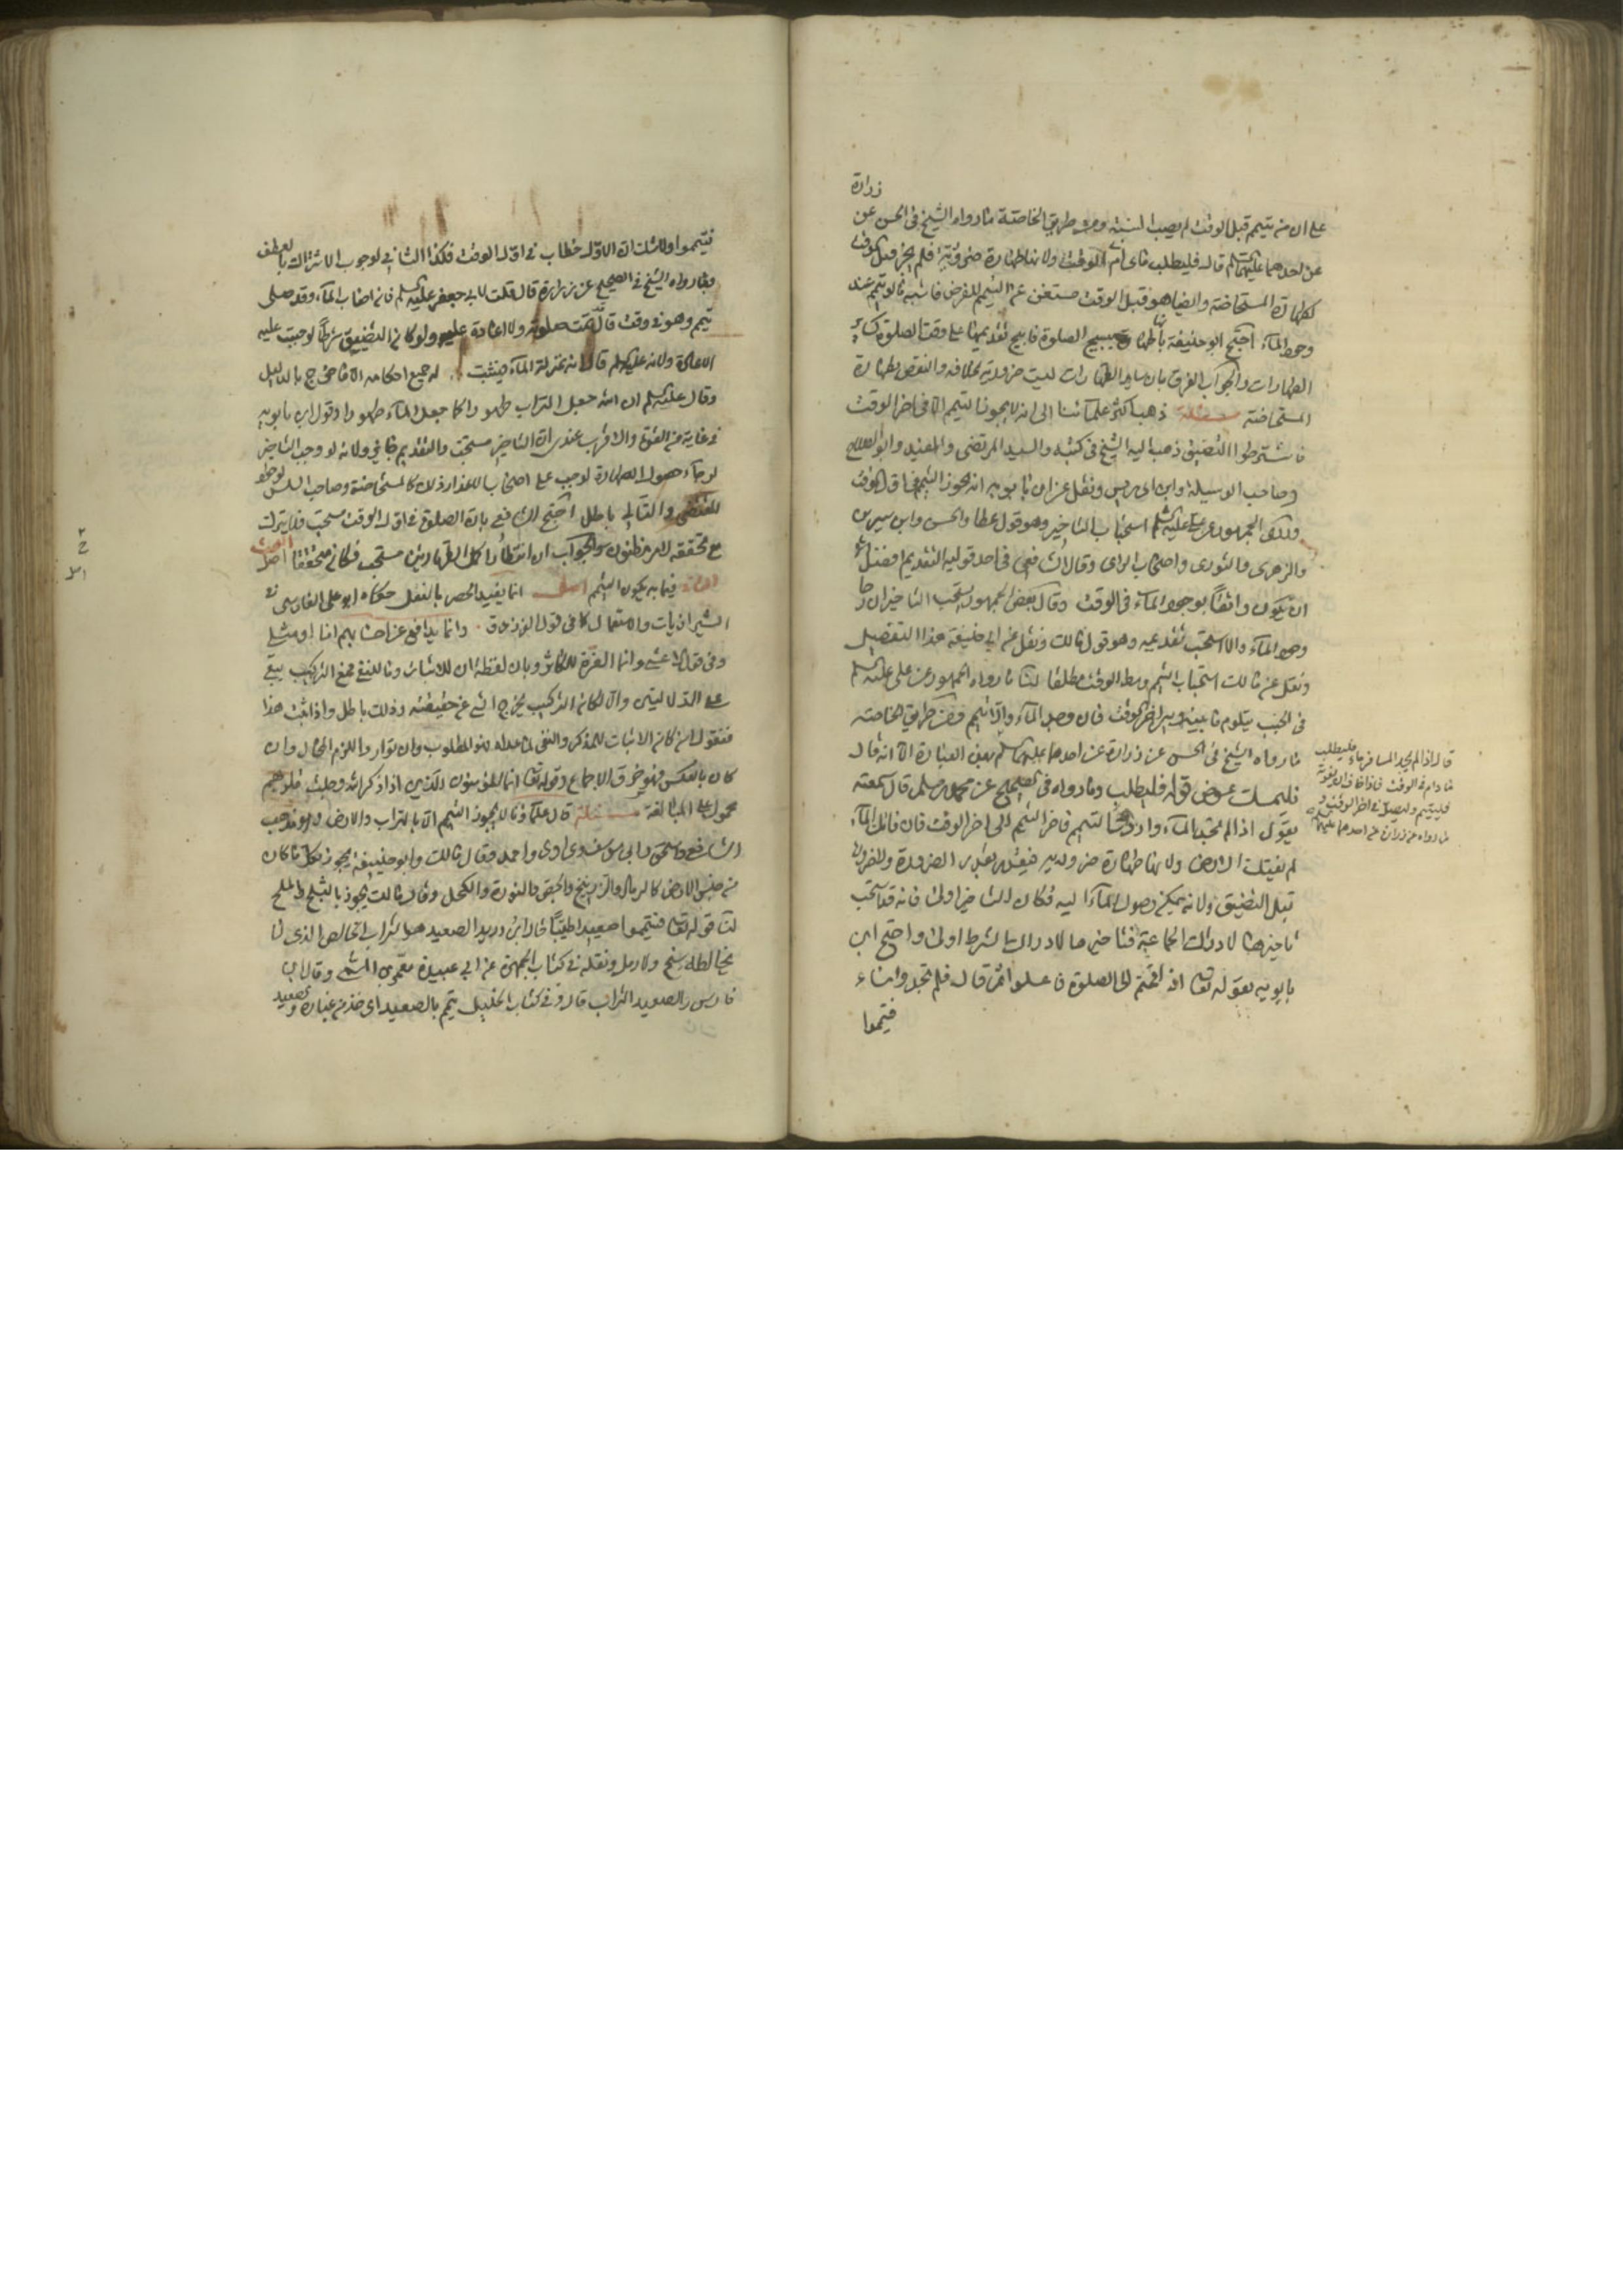 زرارة
على ان من تيمم قبل الوقت لم يصب السنة ومن طريق الخاصة ما رواه الشيخ في الحسن عن
عن احدهما عليهما السلم قال فليطلب ما دام في الوقت ولانها طهارة ضرورية فلم يجز قبل الوقت
كطهارة المستحاضة وايضا هو قبل الوقت مستغن عن التيمم للفرض فاشبه ما لو تيمم عند
وجود الماء احتج ابو حنيفة بانها طهارة تبيح الصلوة فابيح تقديمها على وقت الصلوة كساير
الطهارات والجواب الفرق بان ساير الطهارات ليست ضرورية بخلافه والنقض بطهارة
المستحاضة مسئلة ذهب اكثر علمائنا الى انه لا يجوز التيمم الا في اخر الوقت
فاشترطوا التضييق ذهب اليه الشيخ في كتبه والسيد المرتضى والمفيد وابو الصلاح
وصاحب الوسيلة وابن ادريس ونقل عن ابن بابويه انه يجوز التيمم في اول الوقت
وحكى الجمهور عن علي عليه السلم استحباب التاخير وهو قول عطا والحسن وابن سيرين
والزهري والثوري واصحاب الراي وقال الشافعي في احد قوليه التقديم افضل الا
ان يكون واثقا بوجود الماء في الوقت وقال بعض الجمهور يستحب التاخير ان رجا
وجود الماء والا استحب تقديمه وهو قول مالك ونقل عن ابي حنيفة هذا التفصيل
ونقل عن مالك استحباب التيمم وسط الوقت مطلقا لنا ما رواه الجمهور عن علي عليه السلم
في الجنب يتلوم ما بينه وبين اخر الوقت فان وجد الماء والا تيمم ومن طريق الخاصة
ما رواه الشيخ في الحسن عن زرارة عن احدهما عليهما السلم بهذه العبارة الا انه قال
فليمسك عوض قوله فليطلب وما رواه في الصحيح عن محمد بن مسلم قال سمعته
يقول اذا لم تجد الماء واردت التيمم فاخر التيمم الى اخر الوقت فان فاتك الماء
لم يفتك الارض ولانها طهارة ضرورية فيتقدر بقدر الضرورة ولا ضرورة
قبل التضييق ولانه يمكن وصول الماء اليه فكان التاخير اولى فانه قد استحب
تاخيرها لادراك الجماعة فتاخيرها لادراك الشرط اولى واحتج ابن
بابويه بقوله تعالى اذا قمتم الى الصلوة فاغسلوا ثم قال فلم تجدوا ماء
فتيمموا
قال اذا لم يجد المسافر ماء فليطلب
ما دام في الوقت فاذا خاف ان يفوته
فليتيمم وليصل في اخر الوقت و
ما رواه عن زرارة عن احدهما عليهما السلم
فتيمموا ولا شك ان الاول خطاب في اول الوقت فكذا الثاني لوجوب الاشتراك بالعطف
وبما رواه الشيخ في الصحيح عن زرارة قال قلت لابي جعفر عليه السلم فان اصاب الماء وقد صلى
تيمم وهو في وقت قال تمت صلوته ولا اعادة عليه ولو كان التضييق شرطا لوجبت عليه
الاعادة ولانه عليه السلم قال انه بمنزلة الماء فيثبت له جميع احكامه الا ما خرج بالدليل
وقال عليه السلم ان الله جعل التراب طهورا كما جعل الماء طهورا وقول ابن بابويه
في غاية من القوة والاقرب عندي ان التاخير مستحب والتقديم جايز ولانه لو وجب التاخير
لرجاء حصول الطهارة لوجب على اصحاب الاعذار ذلك كالمستحاضة وصاحب السلس لوجود
المقتضي والتالي باطل احتج الشافعي بان الصلوة في اول الوقت مستحب فلا يترك
مع تحققه لامر مظنون والجواب ان انتظار اكمل الطهارتين مستحب فكان متحققا البحث
الثالث فيما به يكون التيمم اصل انما يفيد الحصر بالنقل حكاه ابو علي الفارسي في
الشيرازيات والاستعمال كما في قول الفرزدق وانما يدافع عن احسابهم انا او مثلي
وفي قول الاعشى وانما العزة للكاثر وبان لفظة ان للاثبات وما للنفي فمع التركيب يبقى
على الدلالتين والا لكان التركيب يخرج الشيء عن حقيقته وذلك باطل واذا ثبت هذا
فنقول ان كان الاثبات للمذكور والنفي لما عداه فهو المطلوب وان توارد اللزم المحال وان
كان بالعكس فهو خرق الاجماع وقوله تعالى انما المؤمنون الذين اذا ذكر الله وجلت قلوبهم
محمول على المبالغة مسئلة قال علماؤنا لا يجوز التيمم الا بالتراب والارض وهو مذهب
الشافعي واسحق وابي يوسف وداود واحمد وقال مالك وابو حنيفة يجوز بكل ما كان
من جنس الارض كالرمل والزرنيخ والجص والنورة والكحل وقال مالك يجوز بالثلج والملح
لنا قوله تعالى فتيمموا صعيدا طيبا قال ابن دريد الصعيد هو التراب الخالص الذي لا
يخالطه سبخ ولا رمل ونقله في كتاب الجمهرة عن ابي عبيدة معمر بن المثنى وقال ابن
فارس الصعيد التراب قال وفي كتاب الخليل تيمم بالصعيد اي خذ من غباره وصعيد